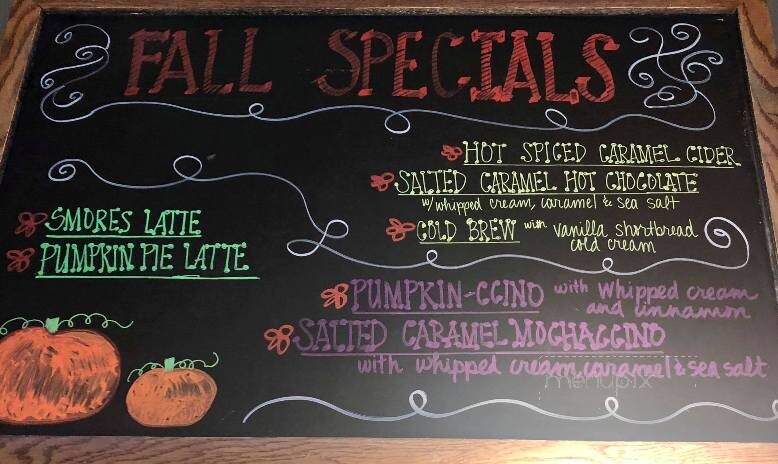 FALL SPECIALS
HOT SPICED CARAMEL CIDER
SALTED CARAMEL HOT CHOCOLATE
w/ whipped cream, caramel & sea salt
COLD BREW with vanilla shortbread
cold cream
SMORES LATTE
PUMPKIN PIE LATTE
PUMPKIN-CCINO with whipped cream
and cinnamon
SALTED CARAMEL MOCHACCINO
with whipped cream, caramel & sea salt
menupix